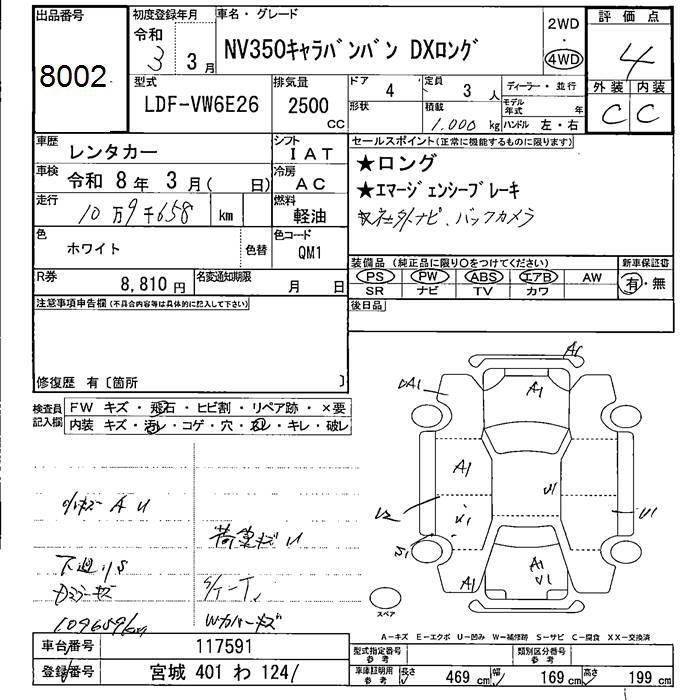 出品番号
8002
初度登録年月
令和
3 3月
車名・グレード
NV350キャラバンバン DXロング
2WD
・
4WD
評価点
4
外装 内装
C C
型式
LDF-VW6E26
排気量
2500
CC
ドア
4
定員
3 人
ディーラー・並行
形状
積載
1.000 kg
モデル年式 年
ハンドル 左・右
車歴
レンタカー
シフト
IAT
車検
令和 8年 3月( 日)
冷房
AC
走行
10万9千658 km
燃料
軽油
色
ホワイト
色替
色コード
QM1
R券
8,810円
名変通知期限
月 日
セールスポイント(正常に機能するものに限ります)
★ロング
★エマージェンシーブレーキ
社外ナビ、バックカメラ
装備品 (純正品に限り○をつけてください)
新車保証書
PS PW ABS エアB AW
SR ナビ TV カワ
有・無
後日品
注意事項申告欄(不具合内容等は具体的に記入して下さい)
修復歴 有〔箇所 〕
検査員記入欄
FW キズ・飛石・ヒビ割・リペア跡・×要
内装 キズ・汚レ・コゲ・穴・スレ・キレ・破レ
A U
荷室キズ U
下廻りS
109659km
Wカバーキズ
A1
A1
A1
U2
U1
U1
A1
A1
U1
スペア
A-キズ E-エクボ U-凹み W-補修跡 S-サビ C-腐食 XX-交換済
車台番号
117591
登録番号
宮城 401 わ 124/
型式指定番号
参考
類別区分番号
参考
車庫証明用
参考
長さ 469 cm 幅 169 cm 高さ 199 cm